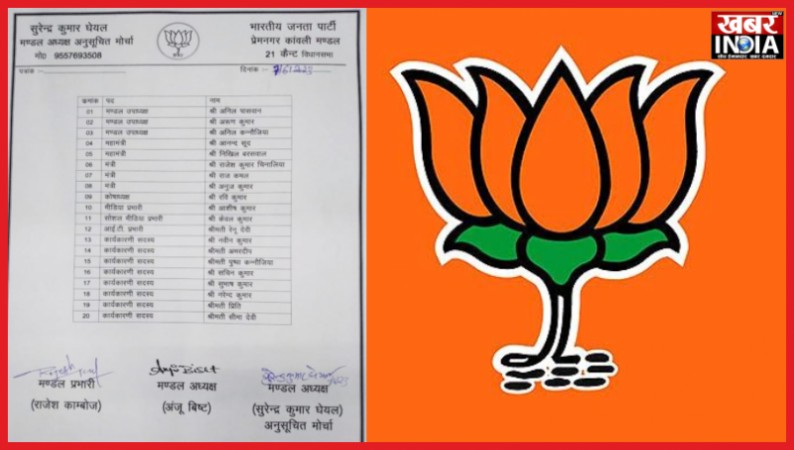 सुरेन्द्र कुमार घेयल
मण्डल अध्यक्ष अनुसूचित मोर्चा
मो० 9557693508
भारतीय जनता पार्टी
प्रेमनगर कांवली मण्डल
21 कैन्ट विधानसभा
दिनांक
खबर
INDIA
क्रमांक पद नाम
01 मण्डल उपाध्यक्ष श्री अनिल पासवान
02 मण्डल उपाध्यक्ष श्री अरूण कुमार
03 मण्डल उपाध्यक्ष श्री अनिल कन्नौजिया
04 महामंत्री श्री आनन्द सूद
05 महामंत्री श्री निखिल बरसवाल
06 मंत्री श्री राजेश कुमार चिनालिया
07 मंत्री श्री राज कमल
08 मंत्री श्री अनुज कुमार
09 कोषाध्यक्ष श्री रवि कुमार
10 मीडिया प्रभारी श्री आशीष कुमार
11 सोशल मीडिया प्रभारी श्री केवल कुमार
12 आई.टी. प्रभारी श्रीमती रेनू देवी
13 कार्यकारणी सदस्य श्री नवीन कुमार
14 कार्यकारणी सदस्य श्रीमती अमरदीप
15 कार्यकारणी सदस्य श्रीमती पुष्पा कन्नौजिया
16 कार्यकारणी सदस्य श्री सचिन कुमार
17 कार्यकारणी सदस्य श्री सुभाष कुमार
18 कार्यकारणी सदस्य श्री नरेन्द्र कुमार
19 कार्यकारणी सदस्य श्रीमती प्रिति
20 कार्यकारणी सदस्य श्रीमती सीमा देवी
मण्डल प्रभारी
(राजेश काम्बोज)
मण्डल अध्यक्ष
(अंजू बिष्ट)
मण्डल अध्यक्ष
(सुरेन्द्र कुमार घेयल)
अनुसूचित मोर्चा